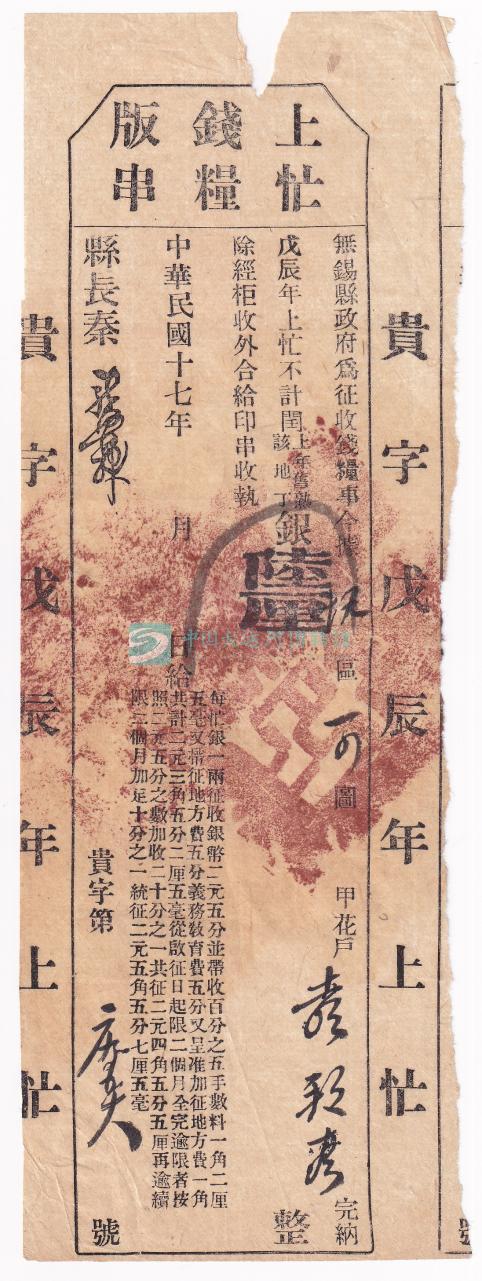 上忙
錢糧
版串
無錫縣政府爲征收錢糧事今據
區
圖
甲花戶
完納
戊辰年上忙不計閏上年舊熟該地丁銀陸厘
整
除經柜收外合給印串收執
中華民國十七年 月 日給
縣長秦
每忙銀一兩征收銀幣二元五分並帶收百分之五手數料一角二厘
五毫又帶征地方費五分義務敎育費五分又呈准加征地方費一角
共計二元三角五分二厘五毫從啟征日起限二個月全完逾限者按
照二元五分之數加收二十分之一共征二元四角五分五厘再逾續
限二個月加足十分之一統征二元五角五分七厘五毫
貴字第
號
貴字戊辰年上忙
貴字戊辰年上忙
中国大运河博物馆